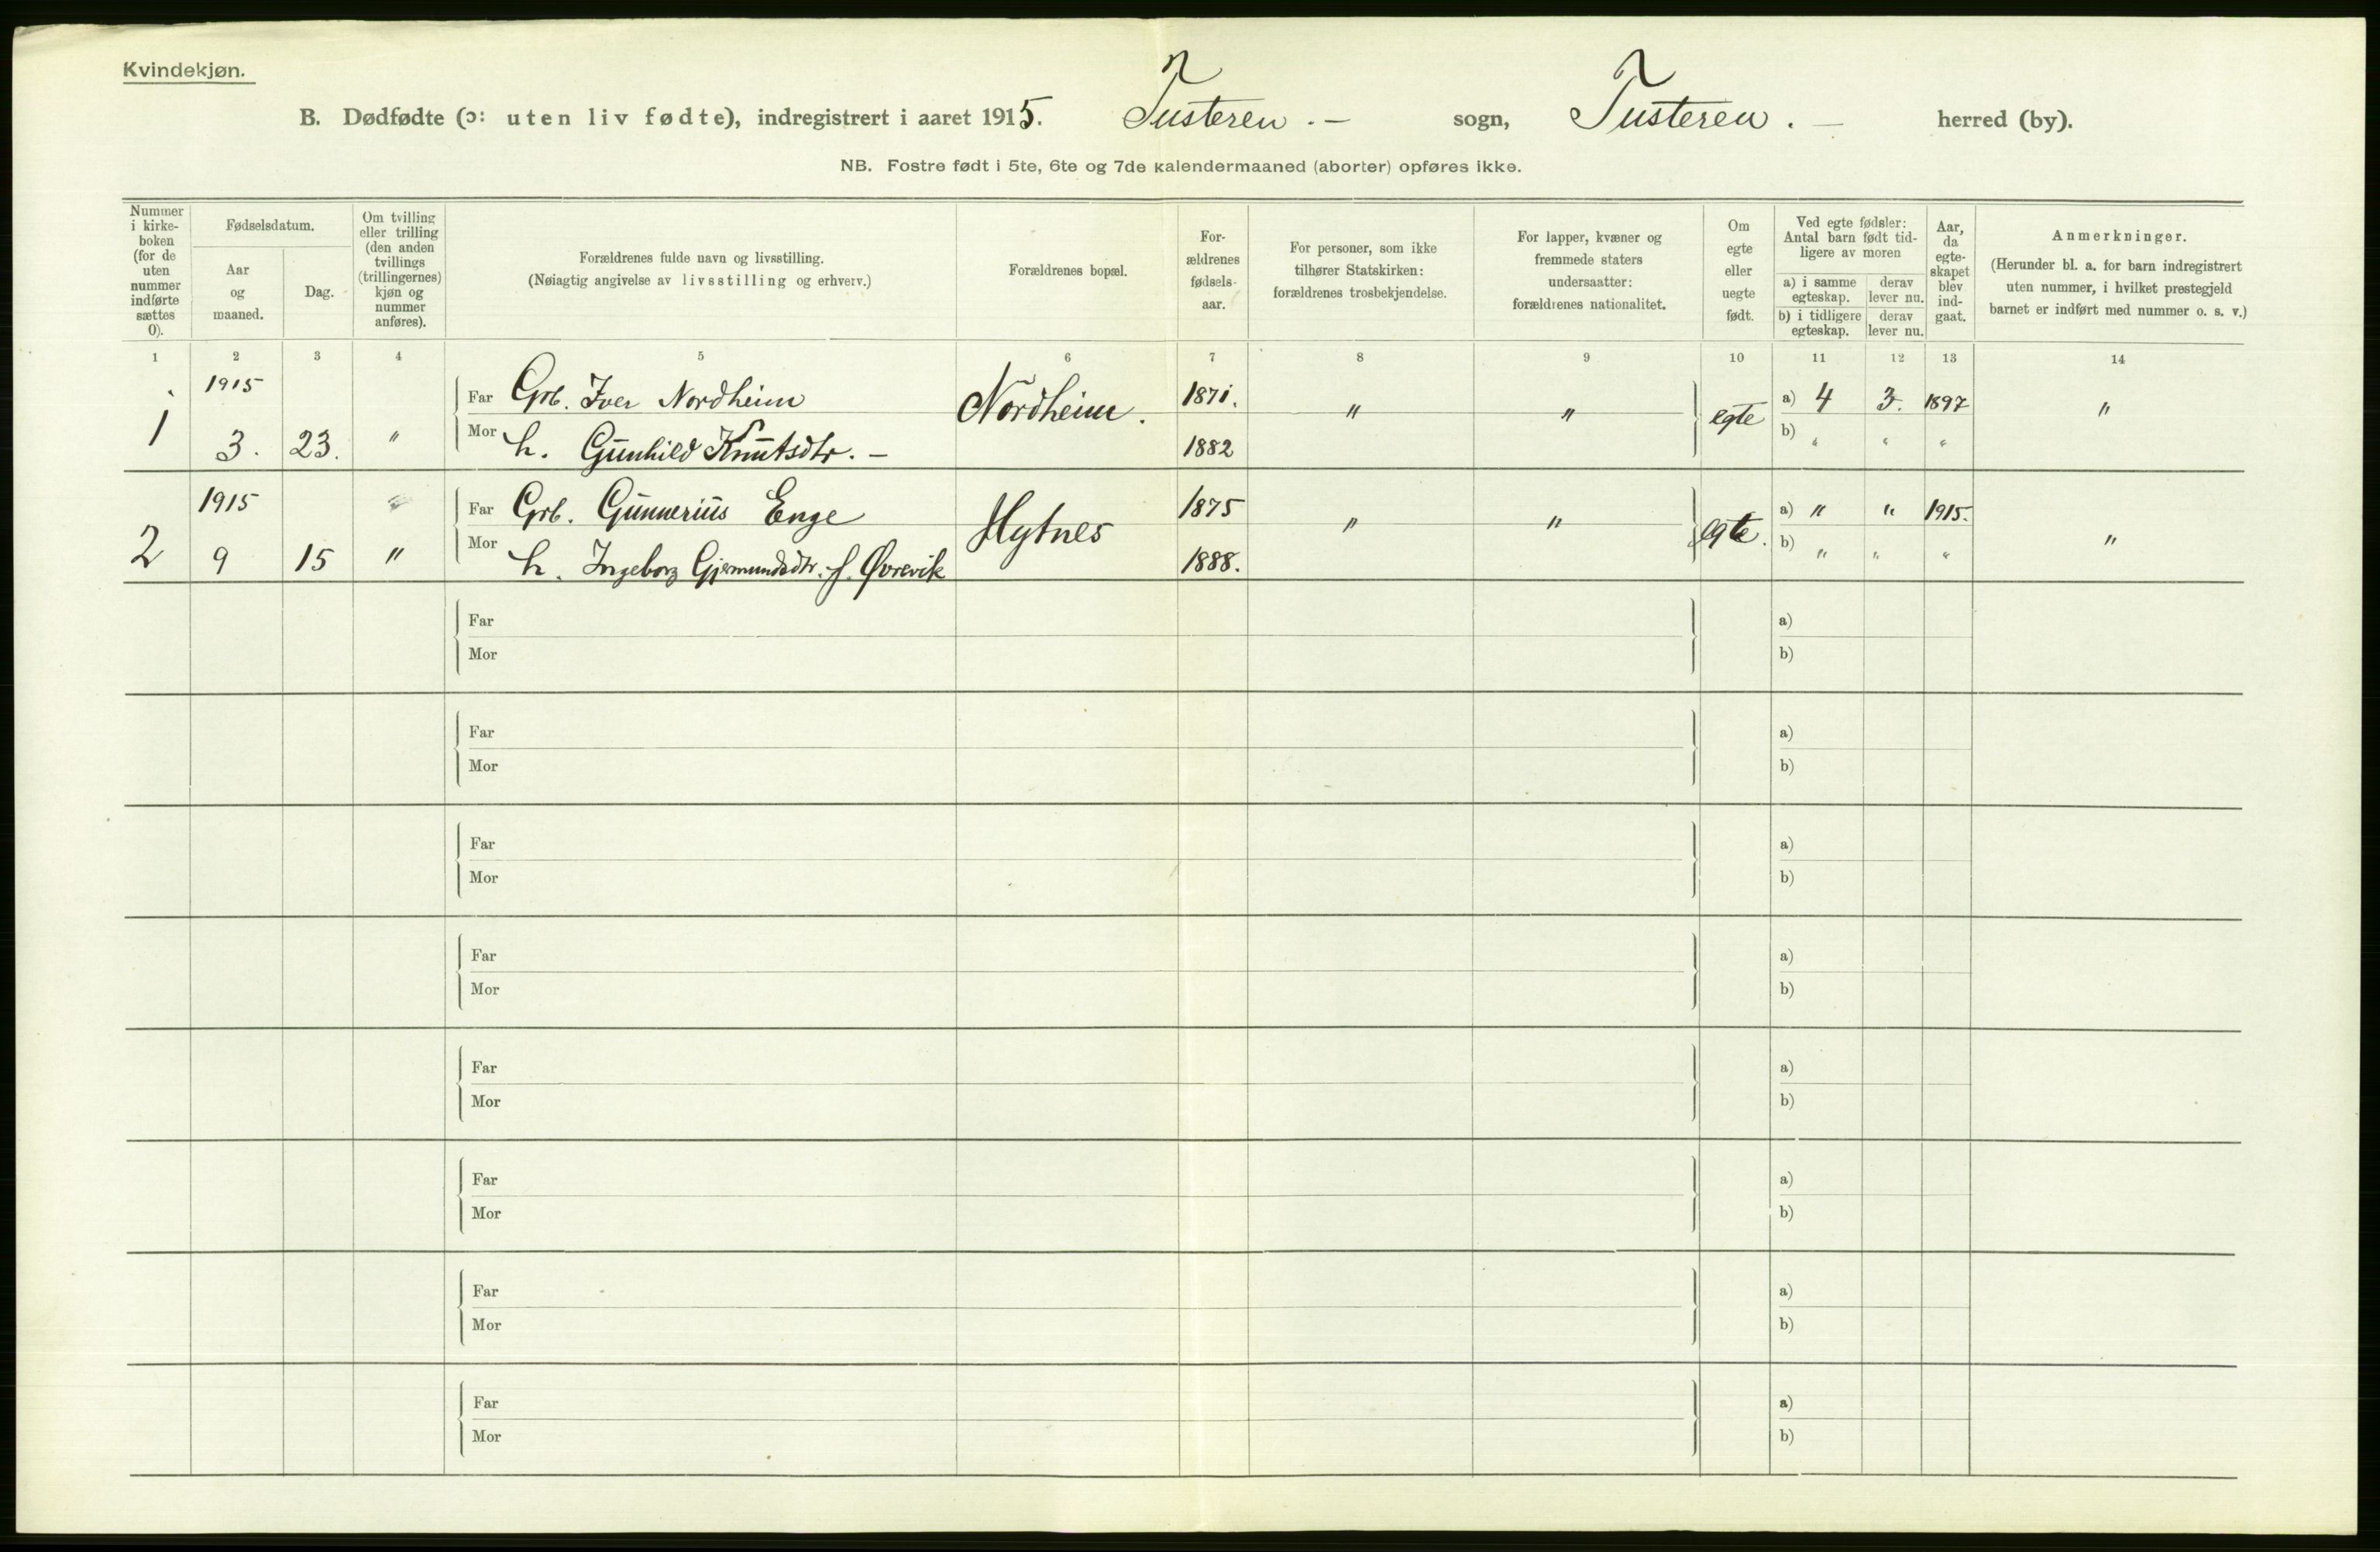 Kvindekjøn.
B. Dødfødte (ɔ: uten liv fødte), indregistrert i aaret 1915. Tusteren.- sogn, Tusteren.- herred (by).
NB. Fostre født i 5te, 6te og 7de kalendermaaned (aborter) opføres ikke.
Nummer i kirke- boken (for de uten nummer indførte sættes 0).
Fødselsdatum.
Aar og maaned.
Dag.
Om tvilling eller trilling (den anden tvillings (trillingernes) kjøn og nummer anføres).
Forældrenes fulde navn og livsstilling.
(Nøiagtig angivelse av livsstilling og erhverv.)
Forældrenes bopæl.
For- ældrenes fødsels- aar.
For personer, som ikke tilhører Statskirken: forældrenes trosbekjendelse.
For lapper, kvæner og fremmede staters undersaatter: forældrenes nationalitet.
Om egte eller uegte født.
Ved egte fødsler: Antal barn født tid- ligere av moren
a) i samme egteskap.
derav lever nu.
b) i tidligere egteskap.
derav lever nu.
Aar, da egte- skapet blev ind- gaat.
Anmerkninger.
(Herunder bl. a. for barn indregistrert uten nummer, i hvilket prestegjeld barnet er indført med nummer o. s. v.)
1 2 3 4 5 6 7 8 9 10 11 12 13 14
1915 Far Grb. Iver Nordheim Nordheim. 1871. " " egte a) 4 3. 1897 "
1 3. 23. " Mor h. Gunhild Knutsdtr. - 1882 b) " " "
1915 Far Grb. Gunnerius Enge Hytnes 1875 " " egte. a) " " 1915. "
2 9 15 " Mor h. Ingeborg Gjermundsdtr. f. Øvrevik 1888. b) " " "
Far a)
Mor b)
Far a)
Mor b)
Far a)
Mor b)
Far a)
Mor b)
Far a)
Mor b)
Far a)
Mor b)
Far a)
Mor b)
Far a)
Mor b)